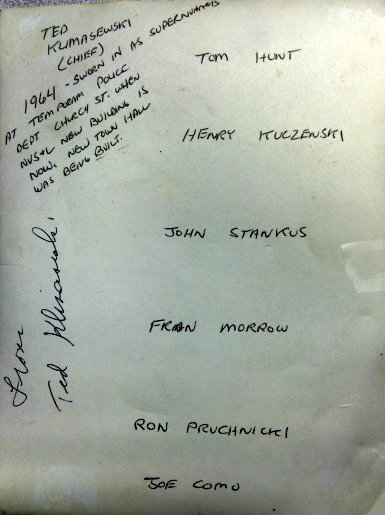 TED
KLIMASEWSKI
(CHIEF)
1964 - SWORN IN AS SUPERNUMARIS
AT TEMPORARI POLICE
DEPT CHURCH ST. WHEN
NVS+L NEW BUILDING IS
NOW. NEW TOWN HALL
WAS BEING BUILT.
TOM HUNT
HENRY KUCZENSKI
JOHN STANKUS
FRAN MORROW
RON PRUCHNICKI
JOE COMO
From
Ted